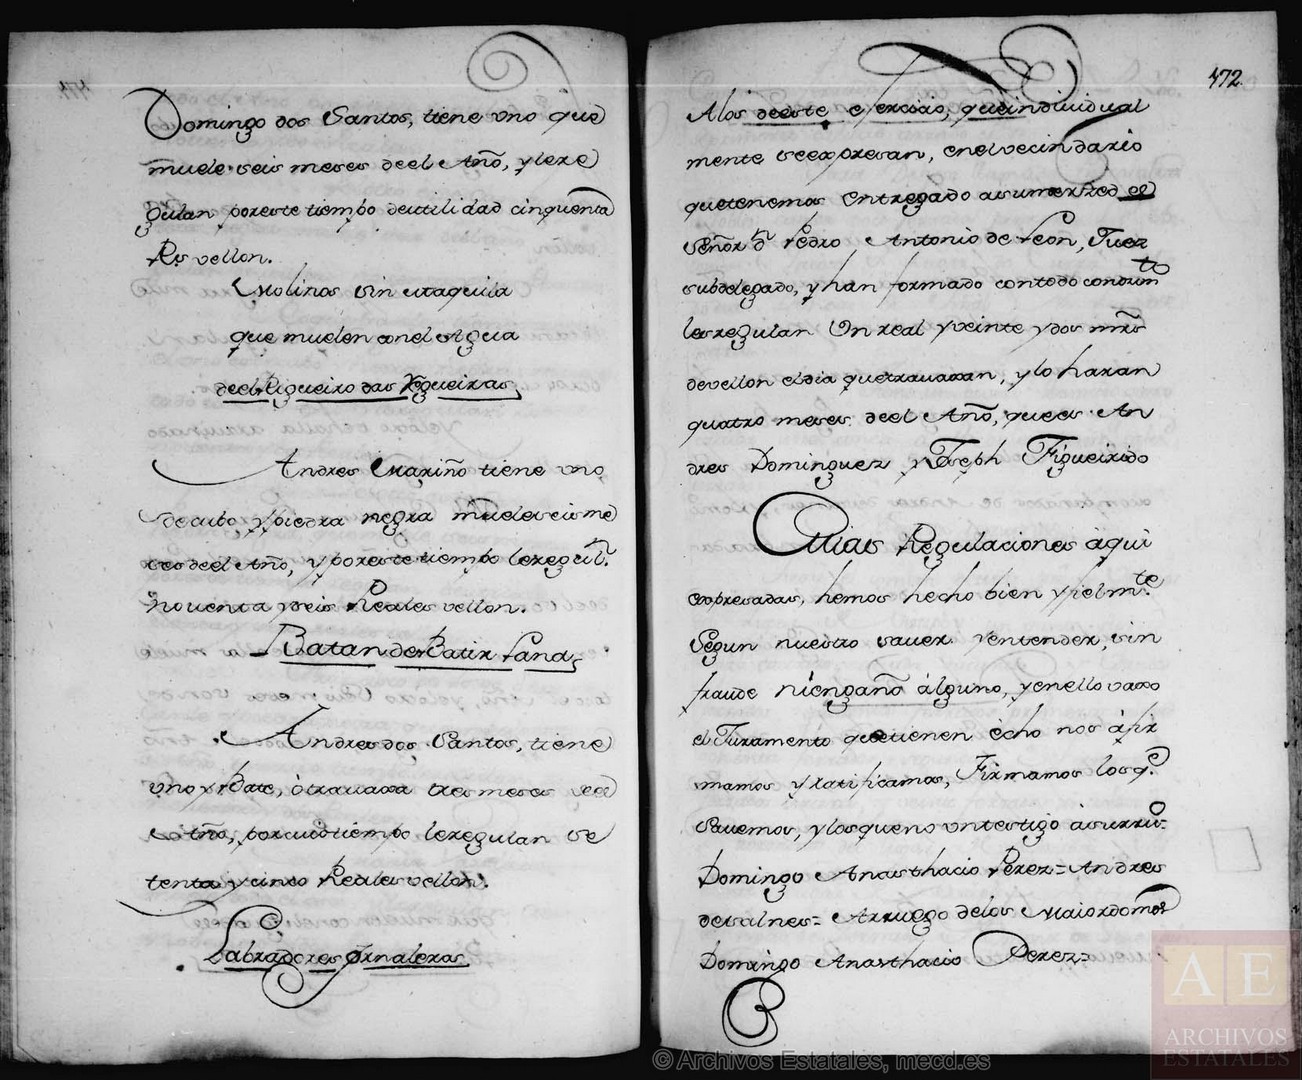 Domingo dos Santos, tiene vno que
muele seis meses deel Año, yle re
gulan poreste tiempo deutilidad cinquenta
Rs vellon.
Molinos sin
que muelen con el Agua
deel Rigueiro das Nogueiras
Andres Mariño tiene vno
decubo ypiedra negra muele seis me
ses deel Año, y poreste tiempo leregul.n
nouenta yseis Reales vellon.
Batan de Batir Lana
Andres dos Santos, tiene
vno y Bate, ò trauaxa tres meses deel
Año, porcuio tiempo leregulan se
tenta y cinco Reales vellon.
Labradores Jornaleros
472
A los deeste exercicio, queindiuidual
mente seexpresan, enelvecindario
quetenemos entregado asumerzed el
Señor Dn Pedro Antonio de Leon, Juez
subdelegado, y han formado contodo
les regulan Vn real yveinte ydos mrs
devellon eldia quetrauaxan, y lo harán
quatro meses deel Año, que es An
dres Dominguez y Joseph Figueirido
Cuias Regulaciones àqui
expresadas, hemos hecho bien yfielm.te
Segun nuestro sauer yentender, sin
fraude niengaño àlguno, yenello vaxo
el Juramento quetienen echo nos àfir
mamos y ratificamos, Firmamos losq.e
Sauemos, ylosqueno vntestigo asurruo=
Domingo Anasthacio Perez= Andres
desalnes= Arruego delos Maiordomos
Domingo Anasthacio Perez=
© Archivos Estatales, mecd.es
AE
ARCHIVOS
ESTATALES